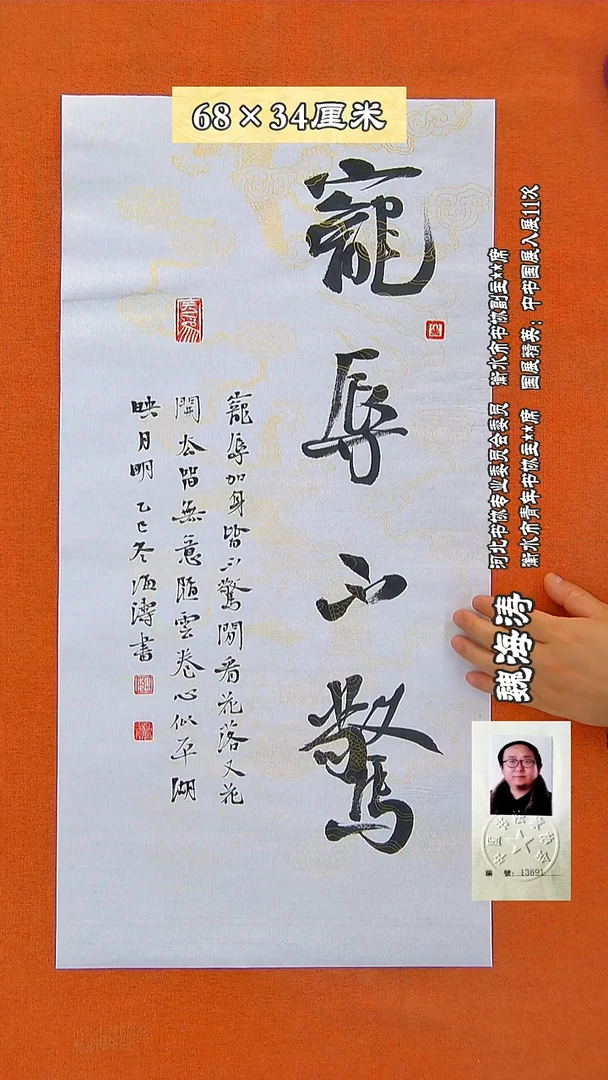 68×34厘米
寵辱不驚
寵辱加身皆不驚閒看花落又花
開去留無意隨雲卷心似平湖
映月明 乙巳冬海濤書
河北书协专业委员会委员 衡水市书协副主**席
衡水市青年书协主**席 国展精英：中书国展入展11次
魏海涛
编 號: 13691